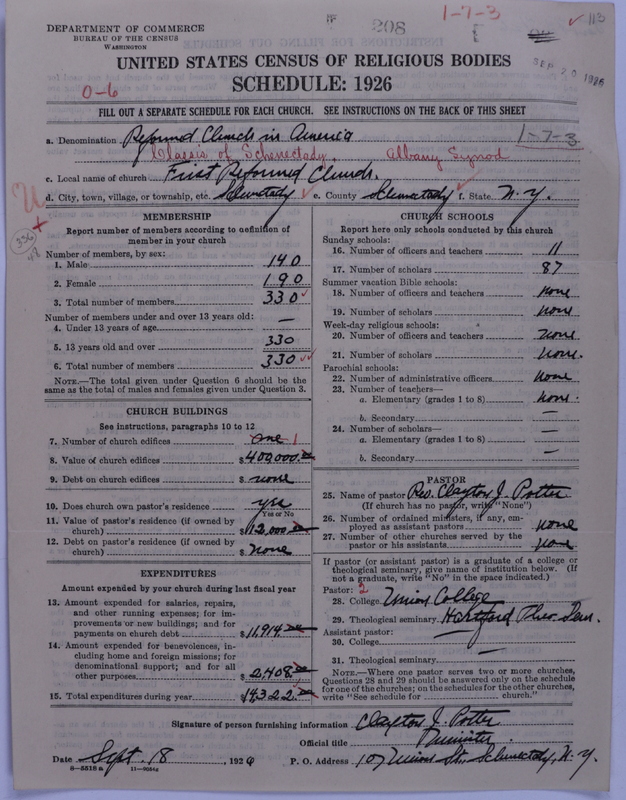 DEPARTMENT OF COMMERCE
BUREAU OF THE CENSUS
WASHINGTON
208
1-7-3
113
SEP 20 1926
UNITED STATES CENSUS OF RELIGIOUS BODIES
SCHEDULE: 1926
0-6
FILL OUT A SEPARATE SCHEDULE FOR EACH CHURCH. SEE INSTRUCTIONS ON THE BACK OF THIS SHEET
a. Denomination Reformed Church in America
1-7-3
Classis of Schenectady, Albany Synod
c. Local name of church First Reformed Church.
d. City, town, village, or township, etc. Schenectady e. County Schenectady f. State N.Y.
336
MEMBERSHIP
Report number of members according to definition of
member in your church
Number of members, by sex:
1. Male 140
2. Female 190
3. Total number of members 330
Number of members under and over 13 years old:
4. Under 13 years of age —
5. 13 years old and over 330
6. Total number of members 330
NOTE.—The total given under Question 6 should be the
same as the total of males and females given under Question 3.
CHURCH BUILDINGS
See instructions, paragraphs 10 to 12
7. Number of church edifices one 1
8. Value of church edifices $400,000.00
9. Debt on church edifices $ none
10. Does church own pastor's residence yes
Yes or No
11. Value of pastor's residence (if owned by
church) $12,000.00
12. Debt on pastor's residence (if owned by
church) $ none
EXPENDITURES
Amount expended by your church during last fiscal year
13. Amount expended for salaries, repairs,
and other running expenses; for im-
provements or new buildings; and for
payments on church debt $11,914.00
14. Amount expended for benevolences, in-
cluding home and foreign missions; for
denominational support; and for all
other purposes $2,408.00
15. Total expenditures during year $14322.00
CHURCH SCHOOLS
Report here only schools conducted by this church
Sunday schools:
16. Number of officers and teachers 11
17. Number of scholars 87
Summer vacation Bible schools:
18. Number of officers and teachers none
19. Number of scholars none
Week-day religious schools:
20. Number of officers and teachers none
21. Number of scholars none.
Parochial schools:
22. Number of administrative officers none
23. Number of teachers—
a. Elementary (grades 1 to 8) none.
b. Secondary —
24. Number of scholars—
a. Elementary (grades 1 to 8) —
b. Secondary —
PASTOR
25. Name of pastor Rev. Clayton J. Potter
(If church has no pastor, write "None")
26. Number of ordained ministers, if any, em-
ployed as assistant pastors none
27. Number of other churches served by the
pastor or his assistants none
If pastor (or assistant pastor) is a graduate of a college or
theological seminary, give name of institution below. (If
not a graduate, write "No" in the space indicated.)
Pastor: 2
28. College Union College
29. Theological seminary Hartford Theo. Sem.
Assistant pastor:
30. College —
31. Theological seminary —
NOTE.—Where one pastor serves two or more churches,
Questions 28 and 29 should be answered only on the schedule
for one of the churches; on the schedules for the other churches,
write "See schedule for church."
Signature of person furnishing information Clayton J. Potter
Official title Minister
Date Sept. 18, 1926 P. O. Address 107 Union St., Schenectady, N.Y.
8-5518a 11-9084